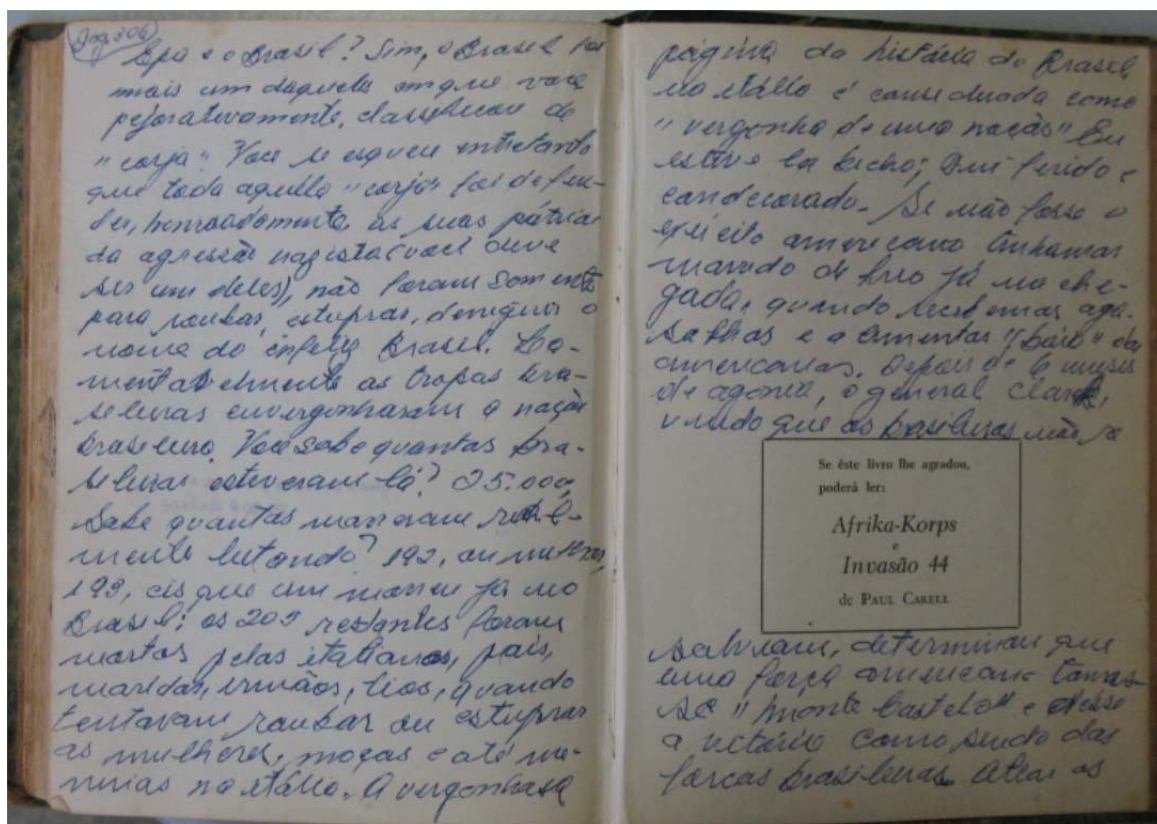 Pag 306
Epa e o Brasil? Sim, o Brasil foi
mais um daqueles em que voce
pejorativamente, classificou de
"corja" Voce se esqueceu entretanto
que toda aquella "corja" foi defen-
der, honradamente, as suas pátrias
da agressão nazista (voce deve
ser um deles), não foram somente
para roubar, estuprar, denegrir o
nome do infeliz Brasil. La-
mentavelmente as tropas bra-
sileiras envergonharam a nação
brasileira. Voce sabe quantos bra-
sileiros estiveram lá? 25.000,
Sabe quantos morreram real-
mente lutando? 192, ou melhor,
193, eis que um morreu já no
Brasil; os 203 restantes foram
mortos pelos italianos, pais,
maridos, irmãos, tios, quando
tentavam roubar ou estuprar
as mulheres, moças e até me-
ninas na Itália. A vergonhosa
página da história do Brasil
na Itália é considerada como
"vergonha de uma nação" Eu
estive lá bicho; Fui ferido e
condecorado. Se não fosse o
exército americano tinhamos
morrido de frio já na che-
gada, quando recebemos aga-
salhos e alimentos "boia" dos
americanos. Depois de 6 meses
de agonia, o general Clark,
vendo que os brasileiros não se
Se êste livro lhe agradou,
poderá ler:
Afrika-Korps
e
Invasão 44
de PAUL CARELL
sahiam, determinou que
uma força americana tomas-
se "monte Castelo" e desse
a vitória como sendo das
forças brasileiras. Alias os